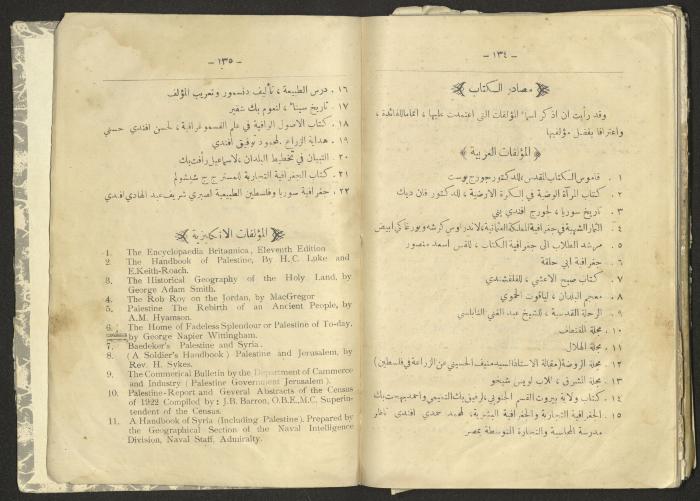 - ١٣٤ -
مصادر الكتاب
وقد رأيت ان اذكر اسماء المؤلفات التي اعتمدت عليها ، اتماما للفائدة ،
واعترافا بفضل مؤلفيها
المؤلفات العربية
١ . قاموس الكتاب المقدس ، للدكتور جورج بوست
٢ . كتاب المرآة الوضية في الكرة الارضية ، للدكتور فان ديك
٣ . تاريخ سوريا ، لجورج افندي يني
٤ . الثمار الشهية في جغرافية المملكة العثمانية ، لاندراوس كرشه وبورعاكي ابيض
٥ . مرشد الطلاب الى جغرافية الكتاب ، للقس اسعد منصور
٦ . جغرافية ابي حلقة
٧ . كتاب صبح الاعشي ، للقلقشندي
٨ . معجم البلدان ، لياقوت الحموي
٩ . الرحلة القدسية ، للشيخ عبد الغني النابلسي
١٠ . مجلة المقتطف
١١ . مجلة الهلال
١٢ . مجلة الروضة (مقالة الاستاذ السيد منيف الحسيني عن الزراعة في فلسطين)
١٣ . مجلة المشرق ، للاب لويس شيخو
١٤ . كتاب ولاية بيروت القسم الجنوبي ، لرفيق بك التميمي واحمد بهجت بك
١٥ . الجغرافية التجارية والجغرافية البشرية ، لمحمد حمدي افندي ناظر
مدرسة المحاسبة والتجارة المتوسطة بمصر
- ١٣٥ -
١٦ . درس الطبيعة ، تأليف دنسمور وتعريب المؤلف
١٧ . تاريخ سيناء ، لنعوم بك شقير
١٨ . كتاب الاصول الوافية في علم القسموغرافية ، لحسن افندي حسني
١٩ . هداية الزراع ، لمحمود توفيق افندي
٢٠ . التبيان في تخطيط البلدان ، لاسماعيل رأفت بك
٢١ . كتاب الجغرافية التجارية للمستر ج ج شاشولم
٢٢ . جغرافية سوريا وفلسطين الطبيعية لصبري شريف عبد الهادي افندي
المؤلفات الانكليزية
1. The Encyclopaedia Britannica, Eleventh Edition
2. The Handbook of Palestine, By H.C. Luke and
E.Keith-Roach.
3. The Historical Geography of the Holy Land, by
George Adam Smith.
4. The Rob Roy on the Jordan, by MacGregor
5. Palestine The Rebirth of an Ancient People, by
A.M. Hyamson.
6. The Home of Fadeless Splendour or Palestine of To-day,
by George Napier Wittingham.
7. Baedeker's Palestine and Syria.
8. (A Soldier's Handbook) Palestine and Jerusalem, by
Rev. H. Sykes.
9. The Commerical Bulletin by the Department of Commerce
and Industry (Palestine Government Jerusalem).
10. Palestine-Report and Geveral Abstracts of the Census
of 1922 Compiled by: J.B. Barron, O.B.E,M.C. Superin-
tendent of the Census.
11. A Handbook of Syria (Including Palestine). Prepared by
the Geographical Section of the Naval Intelligence
Division, Naval Staff, Admiralty.